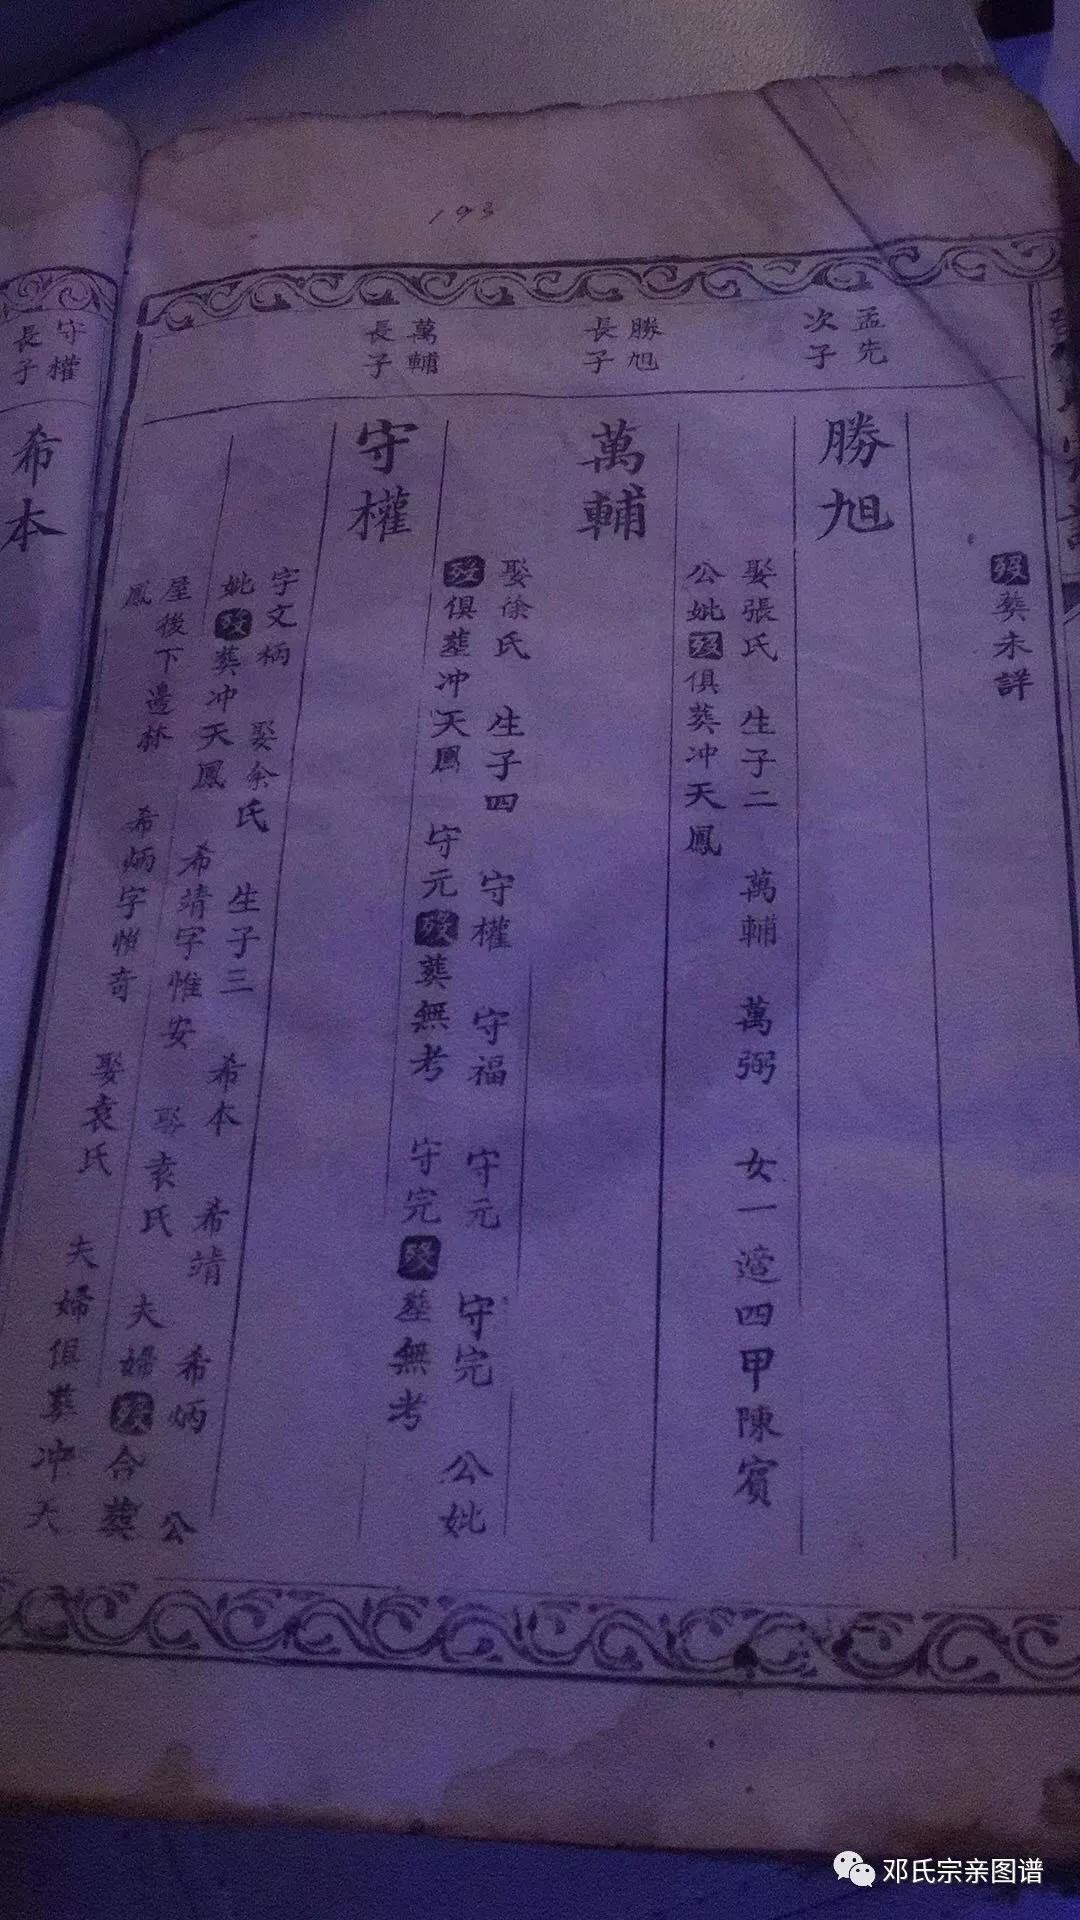 193
歿葬未詳
孟先
次子
勝旭
娶張氏 生子二 萬輔 萬弼 女一適四甲陳賓
公妣歿俱葬冲天鳳
勝旭
長子
萬輔
娶徐氏 生子四 守權 守福 守元 守完 公妣
歿俱葬冲天鳳 守元歿葬無考 守完歿葬無考
萬輔
長子
守權
字文柄 娶余氏 生子三 希本 希靖 希炳 公
妣歿葬冲天鳳 希靖字惟安 娶袁氏 夫婦歿合葬
屋後下邊 希炳字惟奇 娶袁氏 夫婦俱葬冲天
鳳
守權
長子
希本
邓氏宗亲图谱